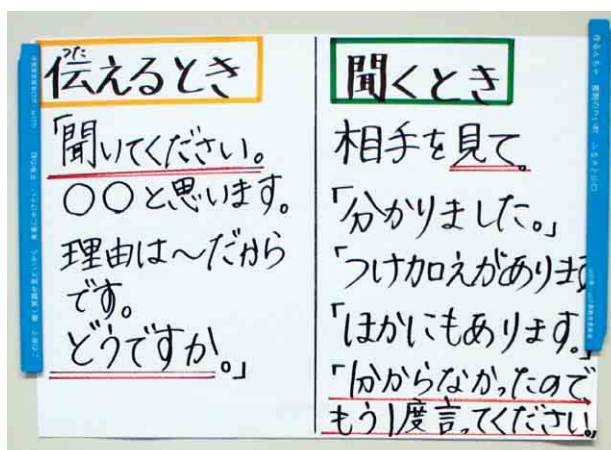 つた
伝えるとき
「聞いてください。
〇〇と思います。
理由は〜だから
です。
どうですか。」
聞くとき
相手を見て。
「分かりました。」
「つけ加えがあります
「ほかにもあります。」
「分からなかったので
もう1度言ってください。」